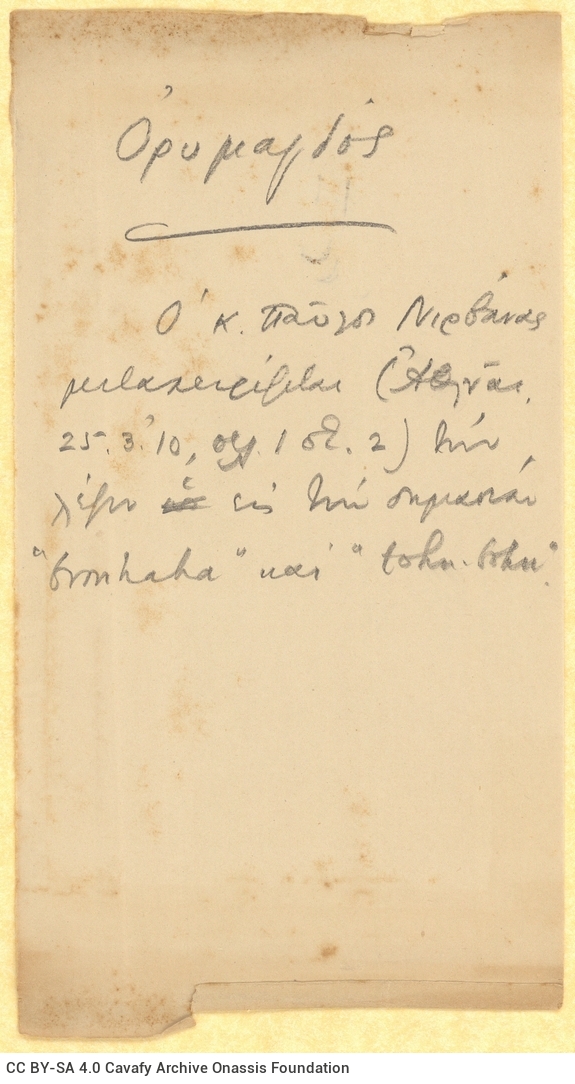 Ὀρυμαγδός
Ὁ κ. Παῦλος Νιρβάνας
μεταχειρίζεται (Ἀθῆναι,
25.3.'10, σελ. 1 στ. 2) τὴν
λέξιν εἰς τὴν σημασίαν
"brouhaha" καὶ "tohu-bohu".
CC BY-SA 4.0 Cavafy Archive Onassis Foundation